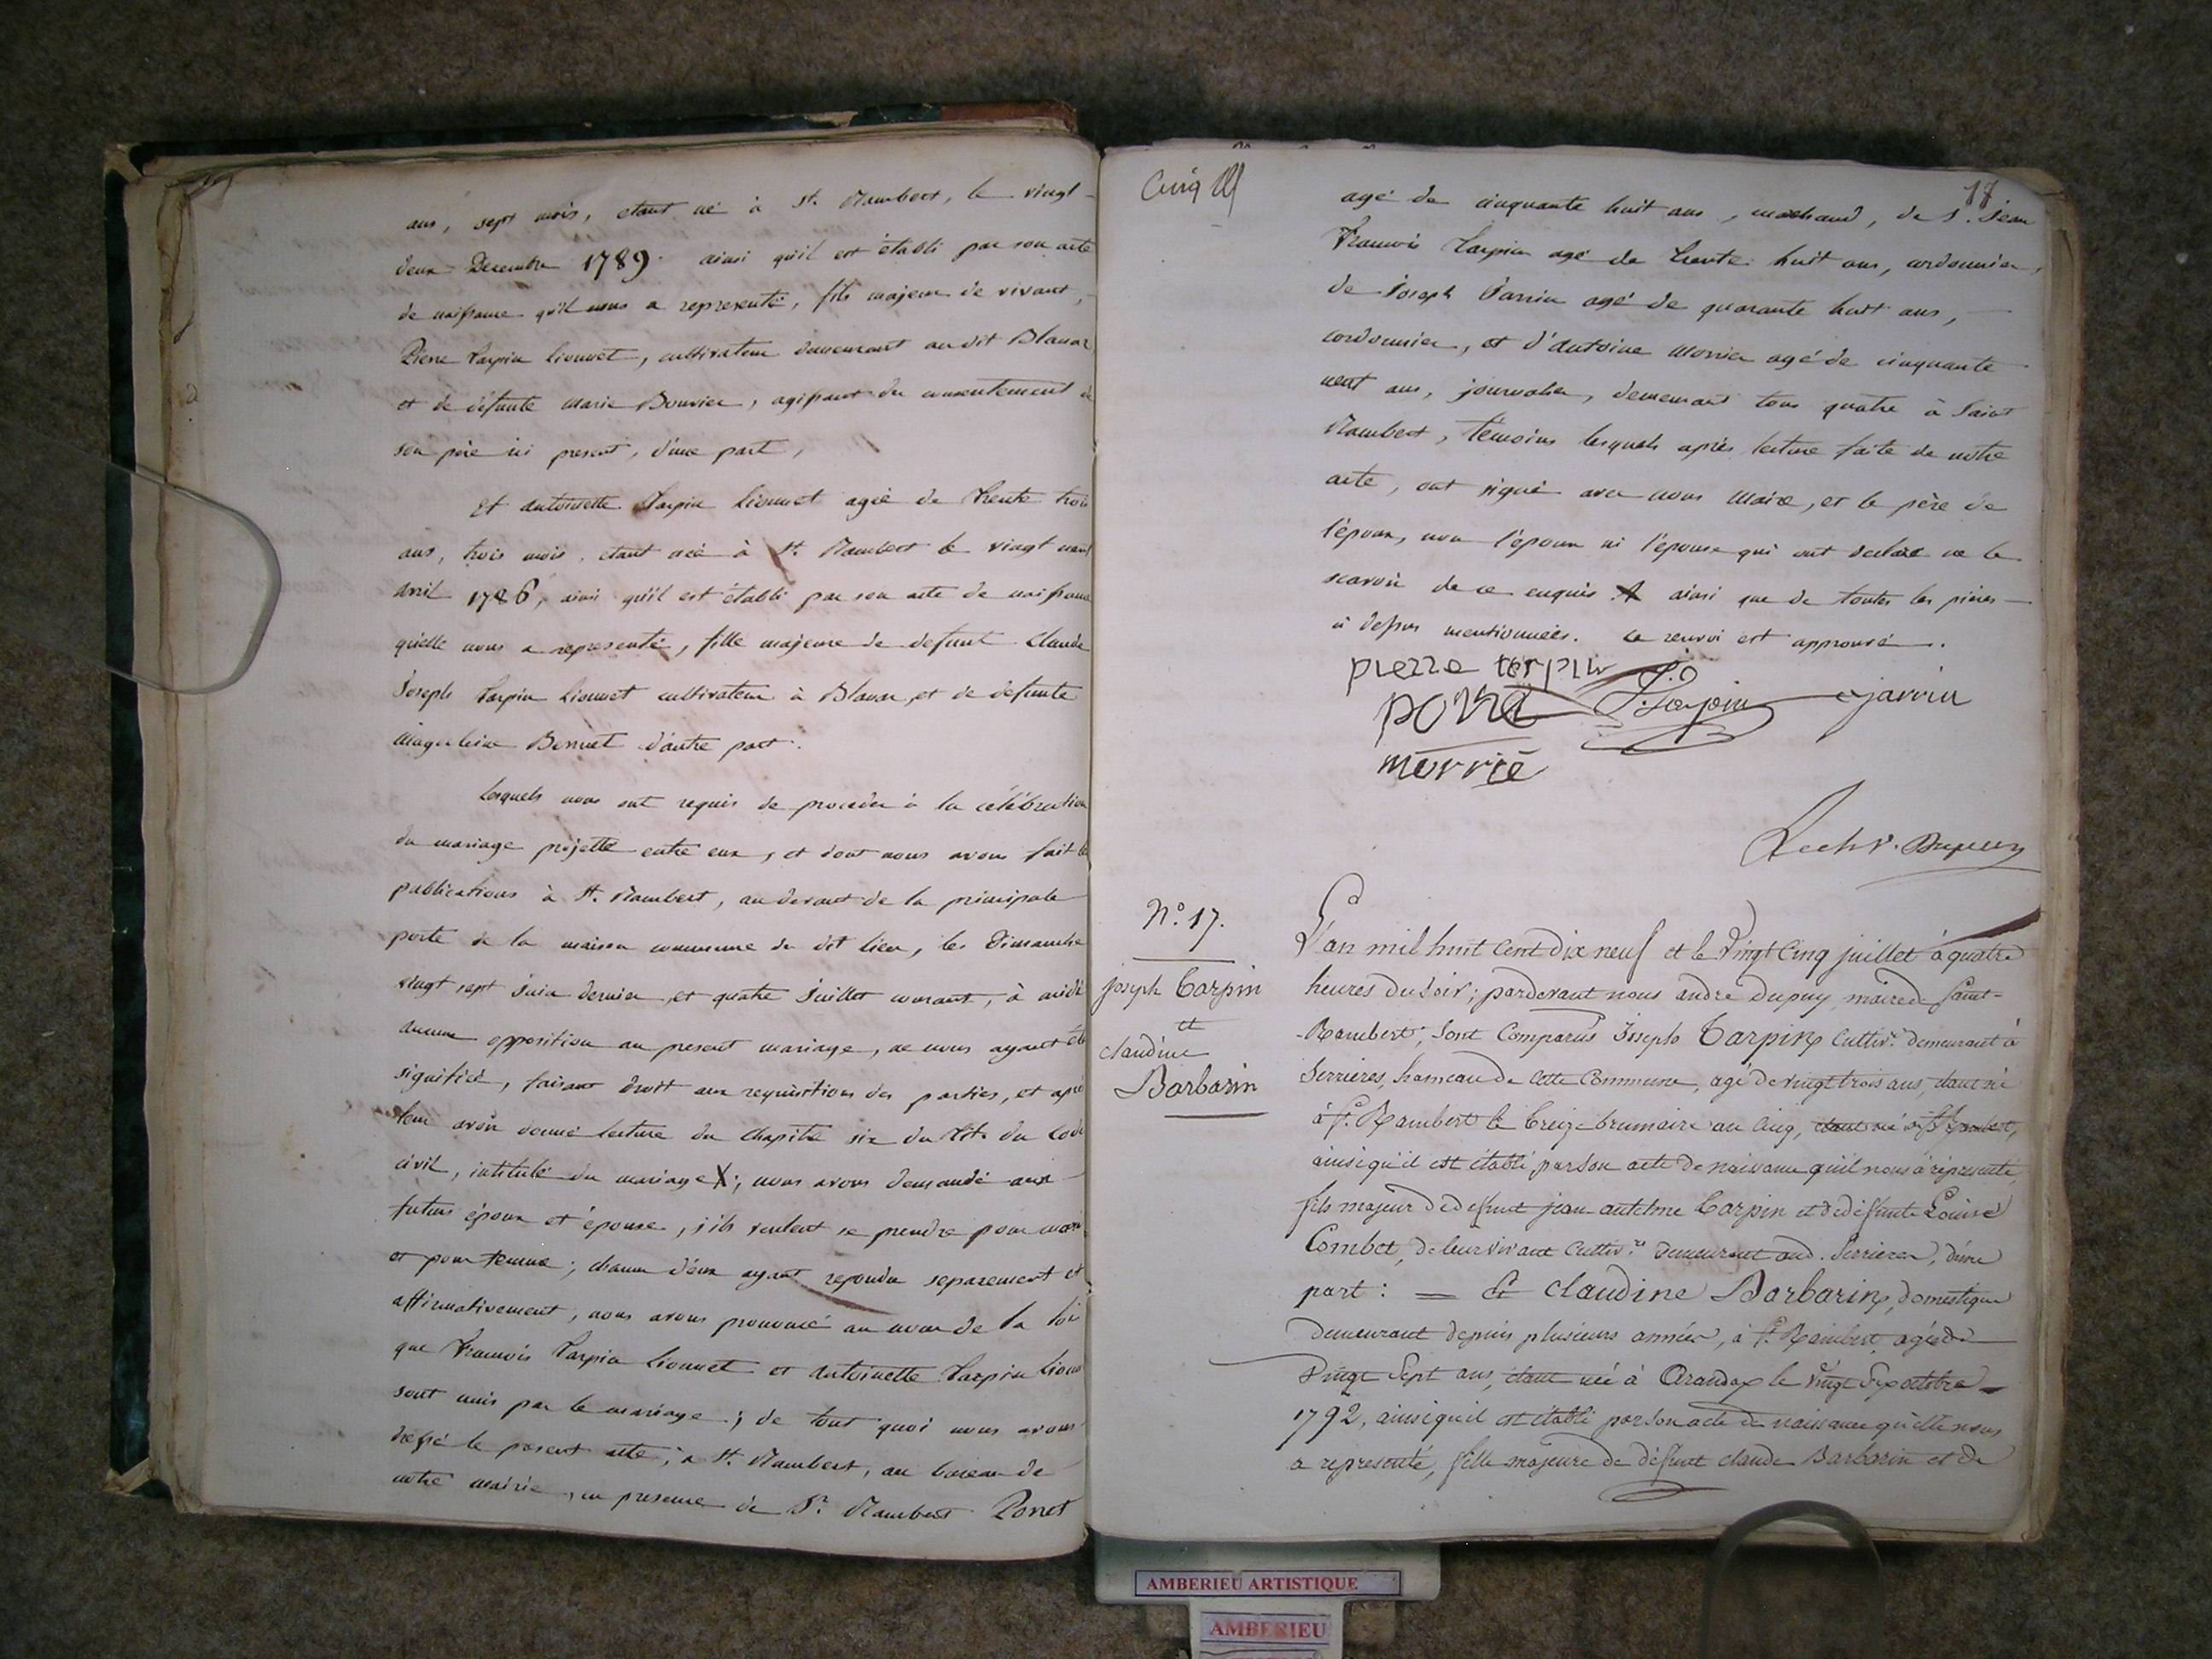 ans, sept mois, etant né à St. Rambert, le vingt-
deux Decembre 1789. ainsi qu'il est établi par son acte
de naissance qu'il nous a representé, fils majeur de vivant,
Pierre Tarpin Lionnet, cultivateur demeurant au dit Blanaz
et de défunte Marie Bouvier, agissant du consentement de
son père ici present, d'une part,
Et antoinette Tarpin Lionnet agée de Trente trois
ans, trois mois, etant née à St. Rambert le vingt neuf
avril 1786, ainsi qu'il est établi par son acte de naissance
qu'elle nous a representé, fille majeure de defunt Claude
Joseph Tarpin Lionnet cultivateur à Blanaz, et de defunte
Magdeleine Bonnet d'autre part.
Lesquels nous ont requis de proceder à la célébration
du mariage projetté entre eux, et dont nous avons fait les
publications à St. Rambert, au devant de la principale
porte de la maison commune du dit lieu, les Dimanche
vingt sept Juin dernier, et quatre Juillet courant, à midi
aucune opposition au present mariage, ne nous ayant été
signifiée, faisant droit aux requisitions des parties, et après
leur avoir donné lecture du Chapitre six du Titre du Code
civil, intitulé du mariage X; nous avons demandé aux
futurs époux et épouse, s'ils veulent se prendre pour mari
et pour femme; chacun d'eux ayant repondu separement et
affirmativement, nous avons prononcé au nom de la loi
que François Tarpin Lionnet et Antoinette Tarpin Lionnet
sont unis par le mariage; de tout quoi nous avons
dressé le present acte, à St. Rambert, au bureau de
notre mairie, en presence de Sr. Rambert Ponet
18
agé de cinquante huit ans, marchand, de S. Jean
François Tarpin agé de trente huit ans, cordonnier,
de Joseph Jarrin agé de quarante huit ans,
cordonnier, et d'Antoine Morrier agé de cinquante
neuf ans, journalier, demeurant tous quatre à Saint
Rambert, témoins lesquels après lecture faite de notre
acte, ont signé avec nous Maire, et le père de
l'époux, non l'époux ni l'épouse qui ont declaré ne le
scavoir de ce enquis X ainsi que de toutes les pièces
ci dessus mentionnées. Ce renvoi est approuvé.
pierre tarpin
J. Tarpin
jarrin
morrie
Dupuy
N.° 17.
joseph Tarpin
et
claudine
Barbarin
L'an mil huit Cent dix neuf et le Vingt Cinq juillet à quatre
heures du Soir; pardevant nous andre dupuy, maire de Saint-
Rambert, Sont Comparûs Joseph Tarpin, Cultivr. demeurant à
Serrieres, hameau de cette Commune, agé de vingt trois ans, étant né
à St. Rambert le treize brumaire an Cinq, étant né à St. Rambert,
ainsi qu'il est établi par son acte de naissance qu'il nous a représenté,
fils majeur de defunt jean antelme Tarpin et de défunte Louise
Combet, de leur vivant Cultivrs. demeurant aud. Serrieres, d'une
part : = Et Claudine Barbarin, domestique
demeurant depuis plusieurs années, à St. Rambert, agée de
Vingt Sept ans, étant née à Arandaz le Vingt Six octobre
1792, ainsi qu'il est établi par son acte de naissance qu'elle nous
a représenté, fille majeure de défunt claude Barbarin et de
AMBERIEU ARTISTIQUE
AMBERIEU